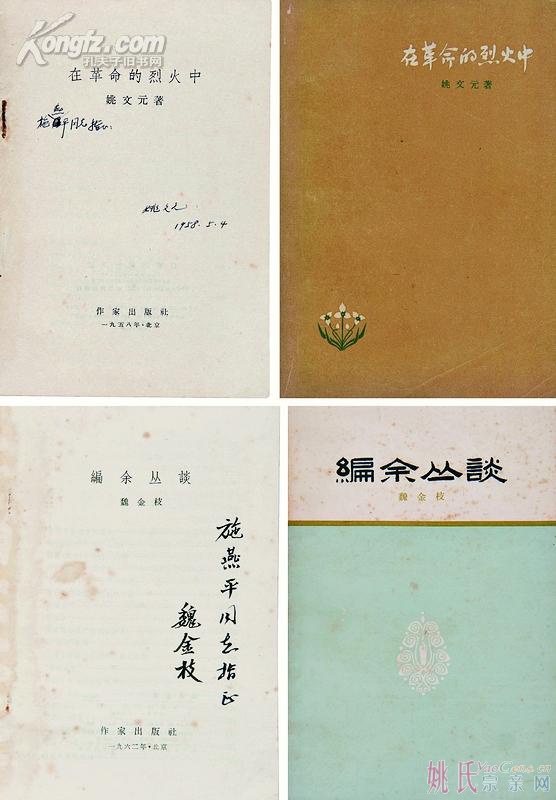 Kongfz.com
孔夫子旧书网
在革命的烈火中
姚文元著
施燕平同志指正:
姚文元
1958.5.4
作家出版社
一九五八年·北京
在革命的烈火中
姚文元著
編余丛談
魏金枝
施燕平同志指正
魏金枝
作家出版社
一九六二年·北京
編余丛談
魏金枝
姚氏宗亲网
YaoGens.cn